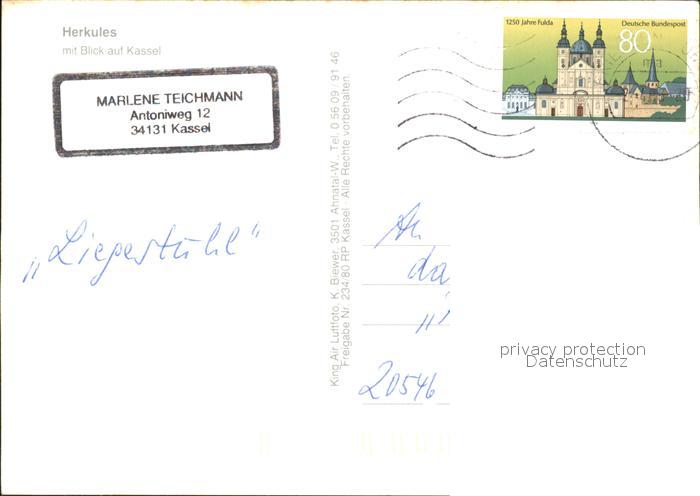 Herkules
mit Blick auf Kassel
MARLENE TEICHMANN
Antoniweg 12
34131 Kassel
„Liegestuhl“
King Air Luftfoto, K. Biewer, 3501 Ahnatal-W., Tel. 0 56 09 / 91 46
Freigabe Nr. 234/80 RP Kassel · Alle Rechte vorbehalten
1250 Jahre Fulda
Deutsche Bundespost
80
An
da
20546
privacy protection
Datenschutz